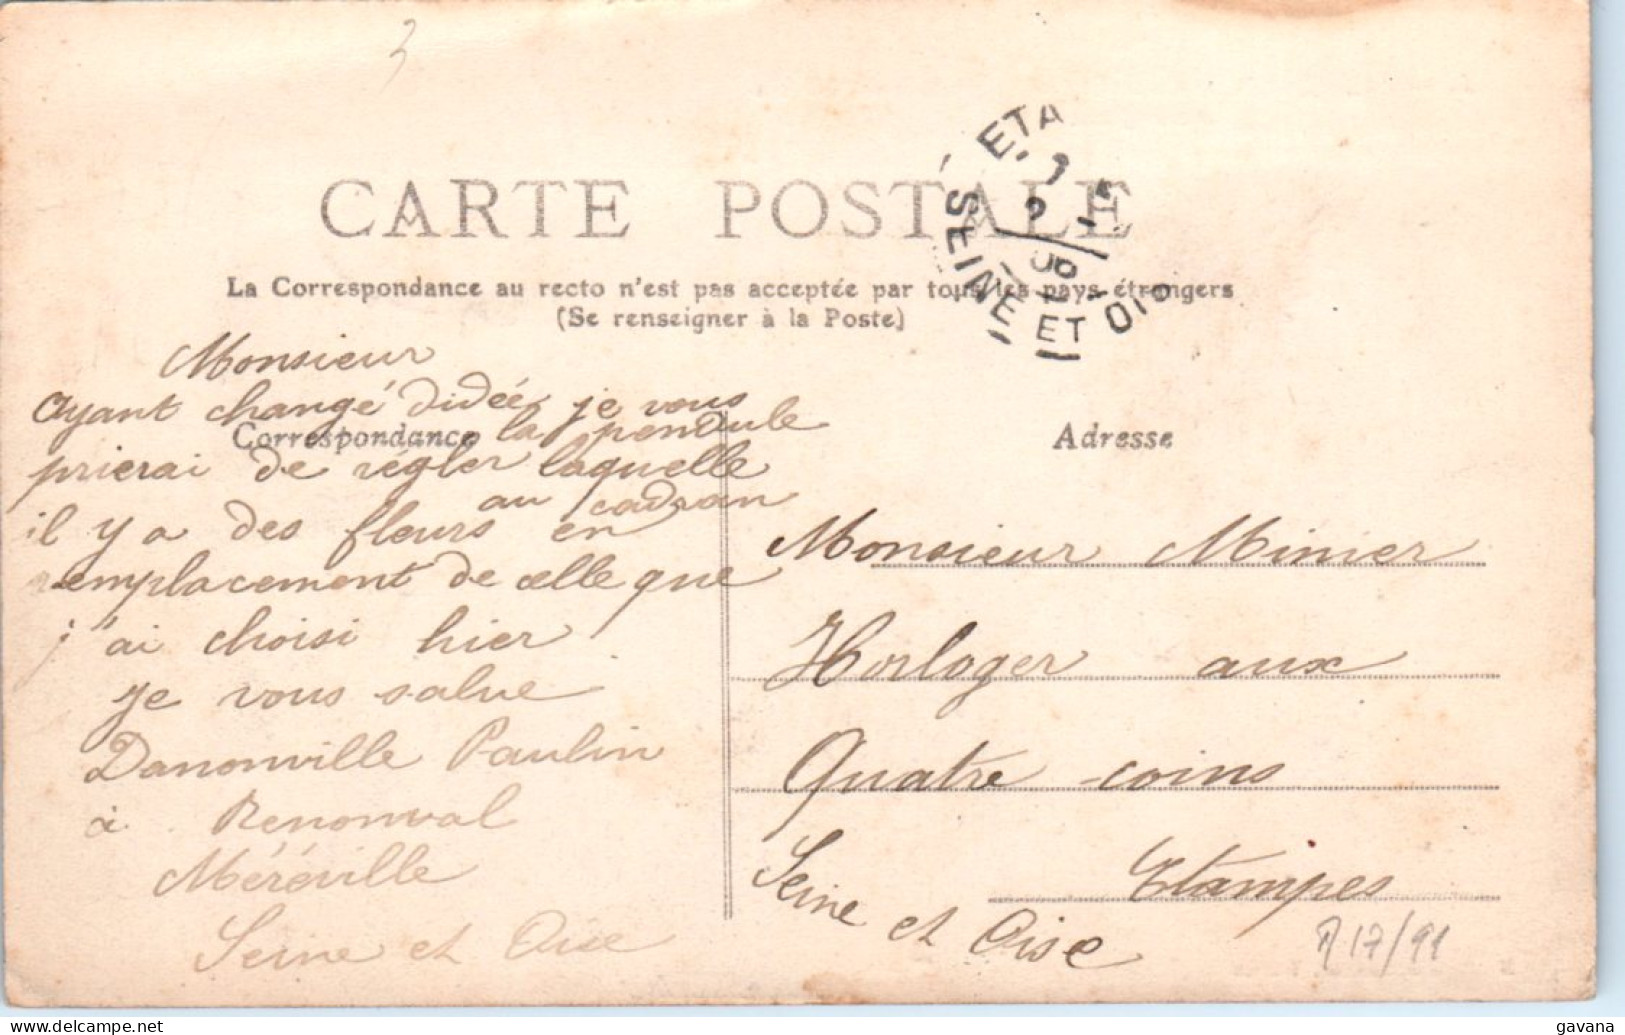 3
CARTE POSTALE
La Correspondance au recto n'est pas acceptée par tous les pays étrangers
(Se renseigner à la Poste)
ETA
SEINE ET OIS
Correspondance
Monsieur
Ayant changé didée je vous
prierai de régler la pendule
laquelle
il y a des fleurs au cadran
en
remplacement de celle que
j'ai choisi hier
je vous salue
Danonville Paulin
à Renonval
Méréville
Seine et Oise
Adresse
Monsieur Minier
Horloger aux
Quatre-coins
Etampes
Seine et Oise
17/91
delcampe.net
gavana